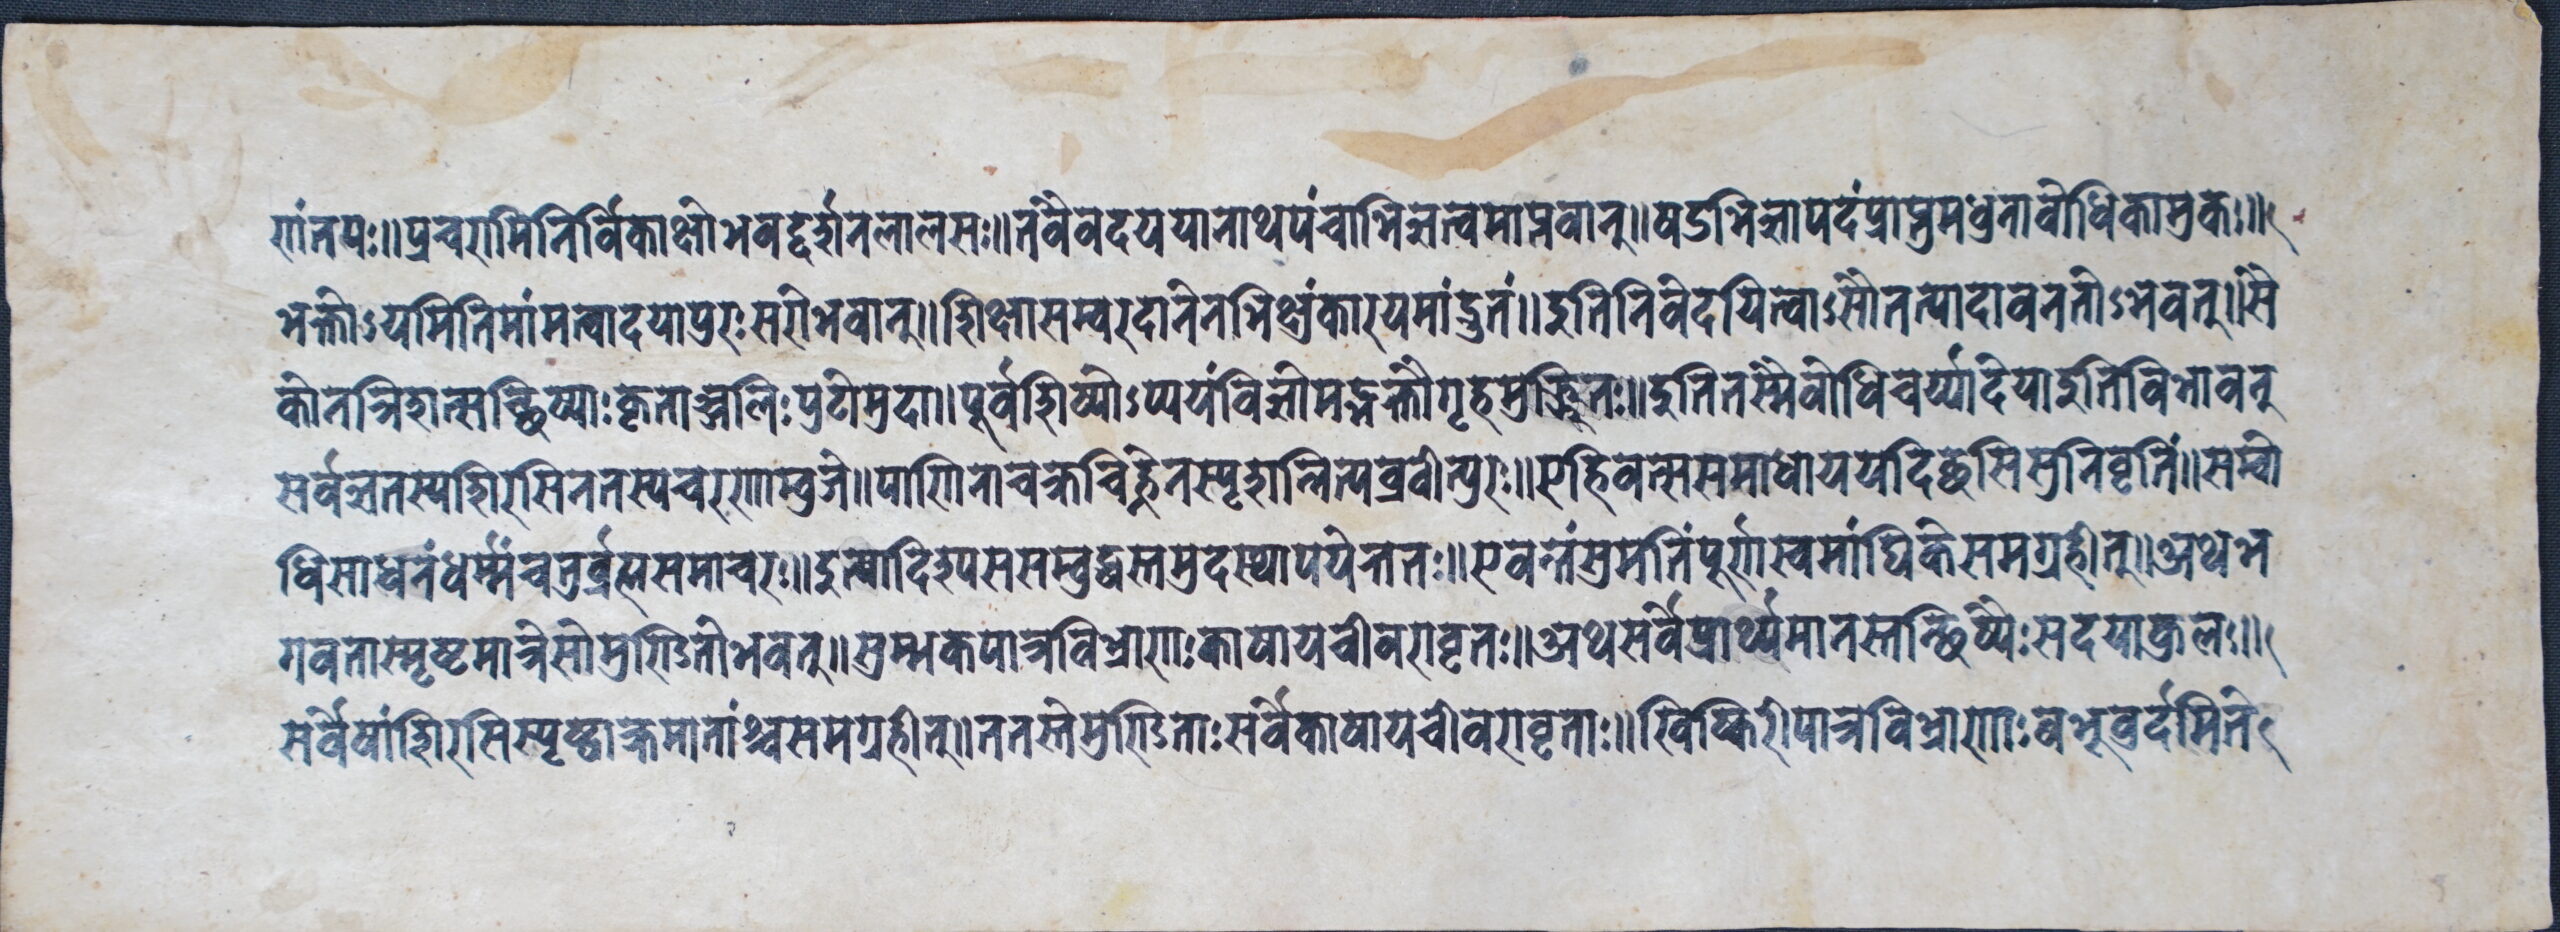 णांतपः॥प्रचरामिनिर्विकाक्षीभवद्दर्शनलालसः॥तवैवदययानाथपंचाभिज्ञत्वमाप्नवान्॥षडभिज्ञापदंप्राप्तुमधुनाबोधिकामुकः॥
भक्तोऽयमितिमांमत्वादयापुरःसरोभवान्॥शिक्षासम्वरदानेनभिक्षुंकारयमांद्रुतं॥इतिनिवेदयित्वाऽसौतत्पादावनतोऽभवत्॥सै
कोनत्रिशत्सच्छिष्याःकृताञ्जलिःपुटोमुदा॥पूर्वशिष्योऽप्ययंविज्ञोमद्भक्तौगृह॥इतितस्मैबोधिचर्य्यादेयाइतिविभावन्
सर्वज्ञतस्यशिरसिनतस्यचरणाम्बुजे॥पाणिनाचक्रचिह्नेनस्पृशन्नित्यब्रवीत्पुरः॥एहिवत्ससमाधाययदिच्छसिसुनिवृतिं॥सम्बो
धिसाधनंधर्म्मंचतुर्ब्रह्मसमाचर॥इत्यादिश्यससम्बुद्धस्तमुदस्थापयेत्ततः॥एवन्तंसुमतिंपूर्णास्वमांघिकेसमग्रहीत्॥अथभ
गवतास्मृष्टमात्रेसोमुण्डितोभवत्॥सुम्भकपात्रविभ्राणःकाषायचीवरावृतः॥अथसर्वैप्रार्थ्यमानस्तच्छिष्यैःसदयाकुलः॥
सर्वेषांशिरसिस्पृष्ट्वाक्रमात्तांश्चसमग्रहीत्॥ततस्तेमुण्डिताःसर्वेकाषायचीवरावृताः॥खिष्किरीपात्रविभ्राणाःबभूवुर्दमिते